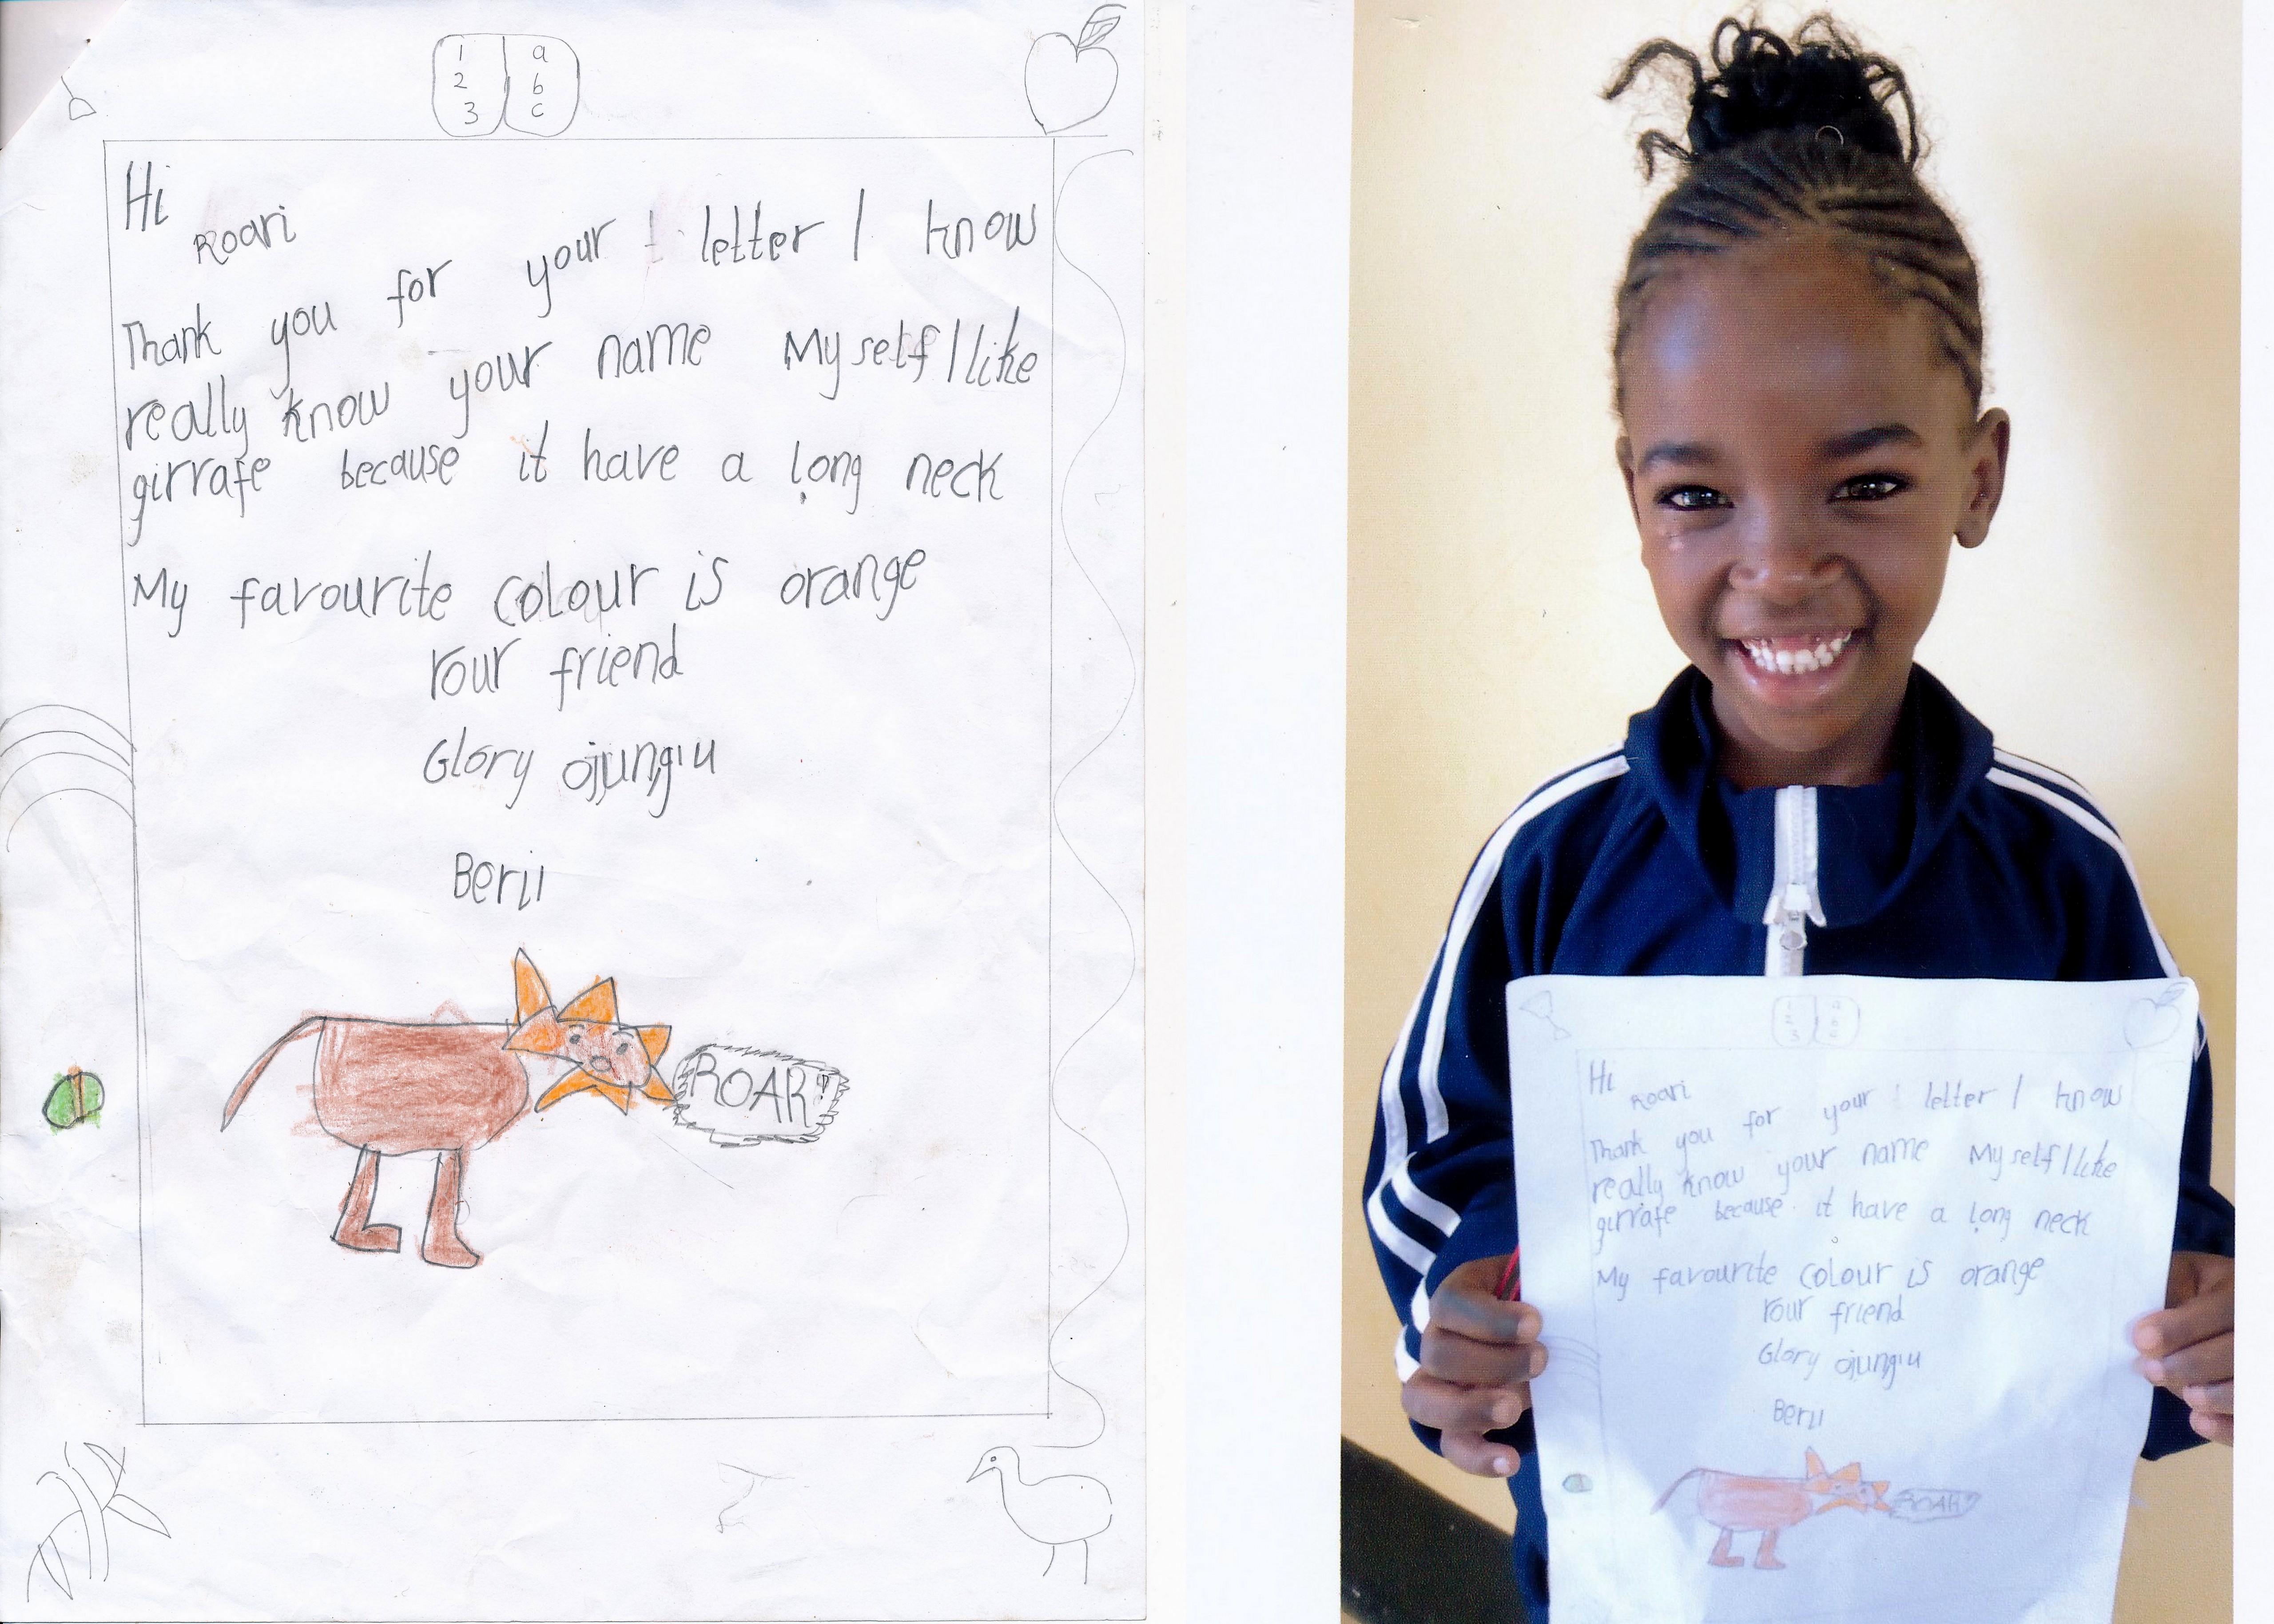 1 a
2 b
3 c
Hi
Roari
Thank you for your letter I know
really know your name My self I like
girrafe because it have a long neck
My favourite colour is orange
Your friend
Glory ojungiu
Berii
ROAR!
1 a
2 b
3 c
Hi
Roari
Thank you for your letter I know
really know your name My self I like
girrafe because it have a long neck
My favourite colour is orange
Your friend
Glory ojungiu
Berii
ROAR!